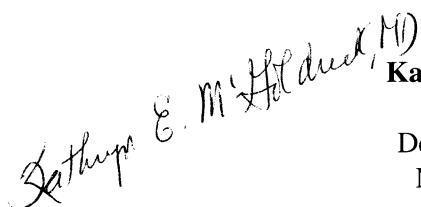 Kathryn E. McGoldrick, MD
Ka
De